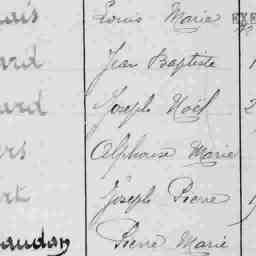 ais Louis Marie EXE
ard Jean Baptiste 1
ard Joseph Noël 2
ers Alphonse Marie
rt Joseph Pierre 1
audon Pierre Marie